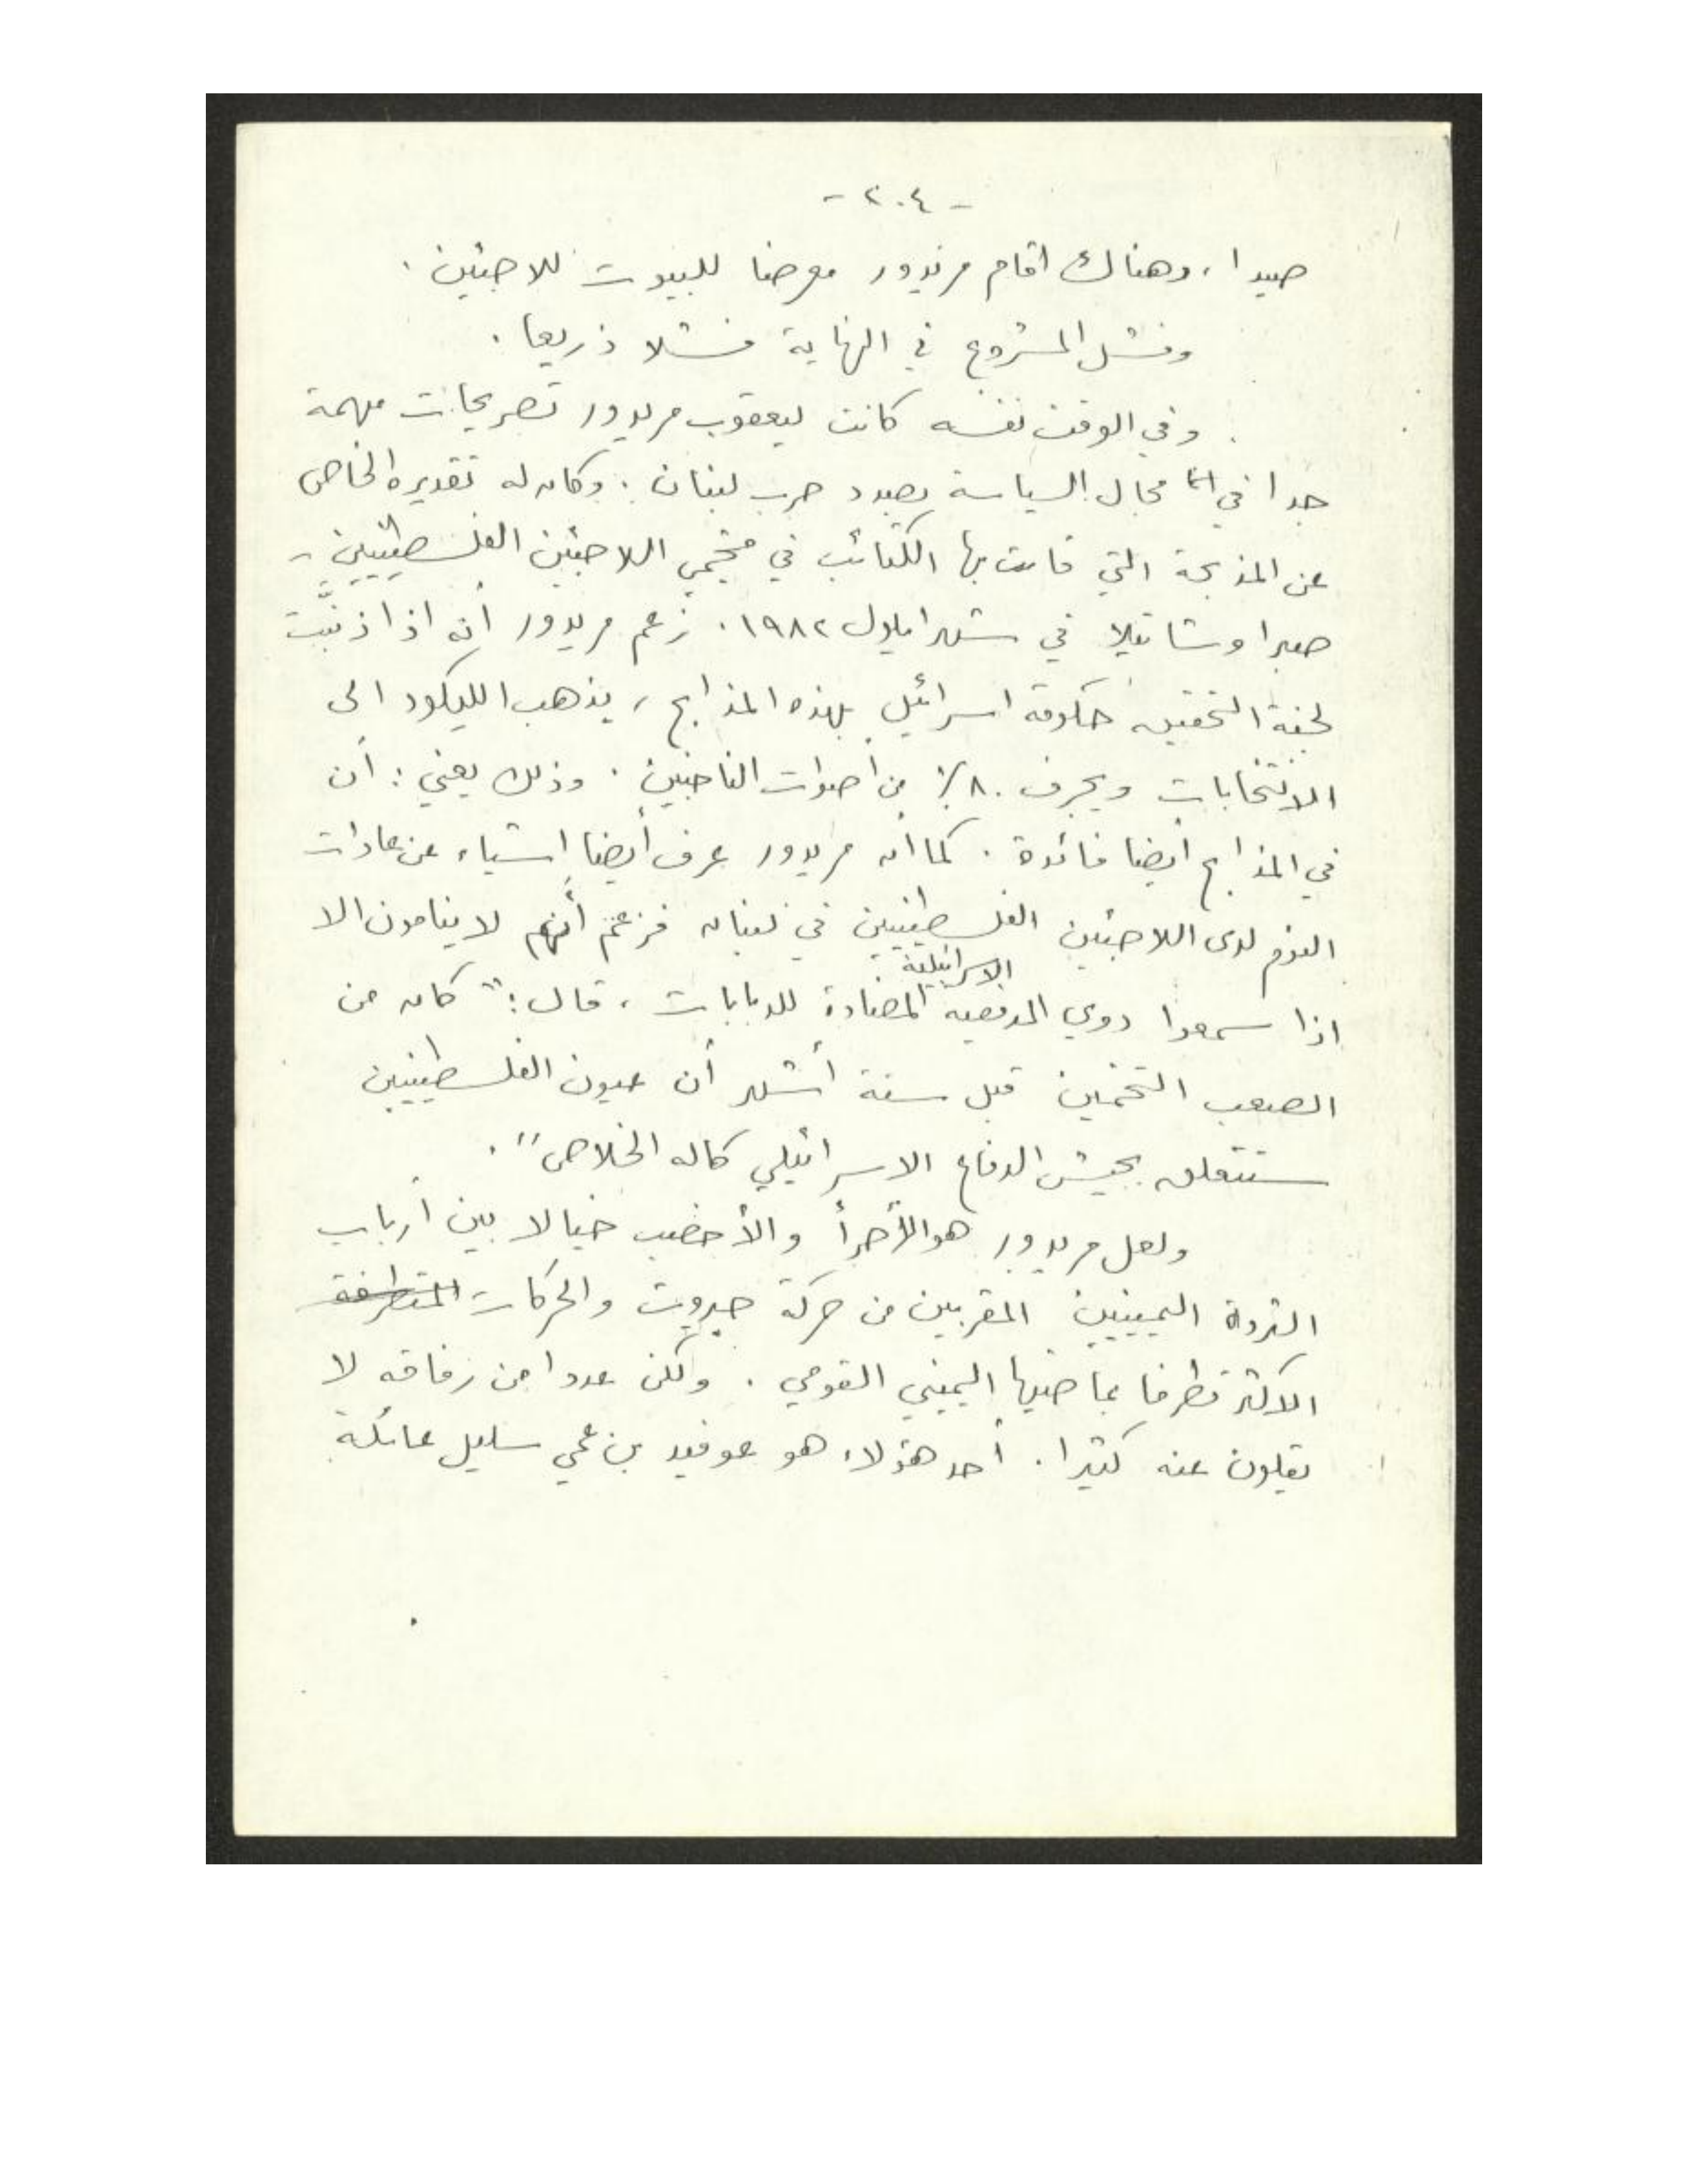 - ٢٠٤ -
صيدا، وهناك اقام مريدور معرضا للبيوت للاجئين.
وفشل المشروع في النهاية فشلا ذريعا.
وفي الوقت نفسه كانت ليعقوب مريدور تصريحات مهمة
جدا في مجال السياسة بصدد حرب لبنان. وكان له تقديره الخاص
عن المذبحة التي قامت بها الكتائب في مخيمي اللاجئين الفلسطينيين،
صبرا وشاتيلا في شهر ايلول ١٩٨٢. زعم مريدور أنه اذا ذنّبت
لجنة التحقيق حكومة اسرائيل بهذه المذابح، يذهب الليكود الى
الانتخابات ويجرف ٨٠٪ من أصوات الناخبين. وذلك يعني: أن
في المذابح أيضا فائدة. كما أن مريدور عرف أيضا اشياء عن عادات
النوم لدى اللاجئين الفلسطينيين في لبنان فزعم أنهم لا ينامون الا
اذا سمعوا دوي المدفعية الاسرائيلية المضادة للدبابات، قال: "كان من
الصعب التخمين قبل ستة أشهر أن عيون الفلسطينيين
ستتعلق بجيش الدفاع الاسرائيلي كاله الخلاص".
ولعل مريدور هو الأجرأ والأخصب خيالا بين أرباب
الثروة اليمينيين المقربين من حركة حيروت والحركات المتطرفة
الاكثر تطرفا بماضيها اليميني القومي. ولكن عددا من رفاقه لا
يقلون عنه كثيرا. أحد هؤلاء هو عوفيد بن عمي سليل عائلة